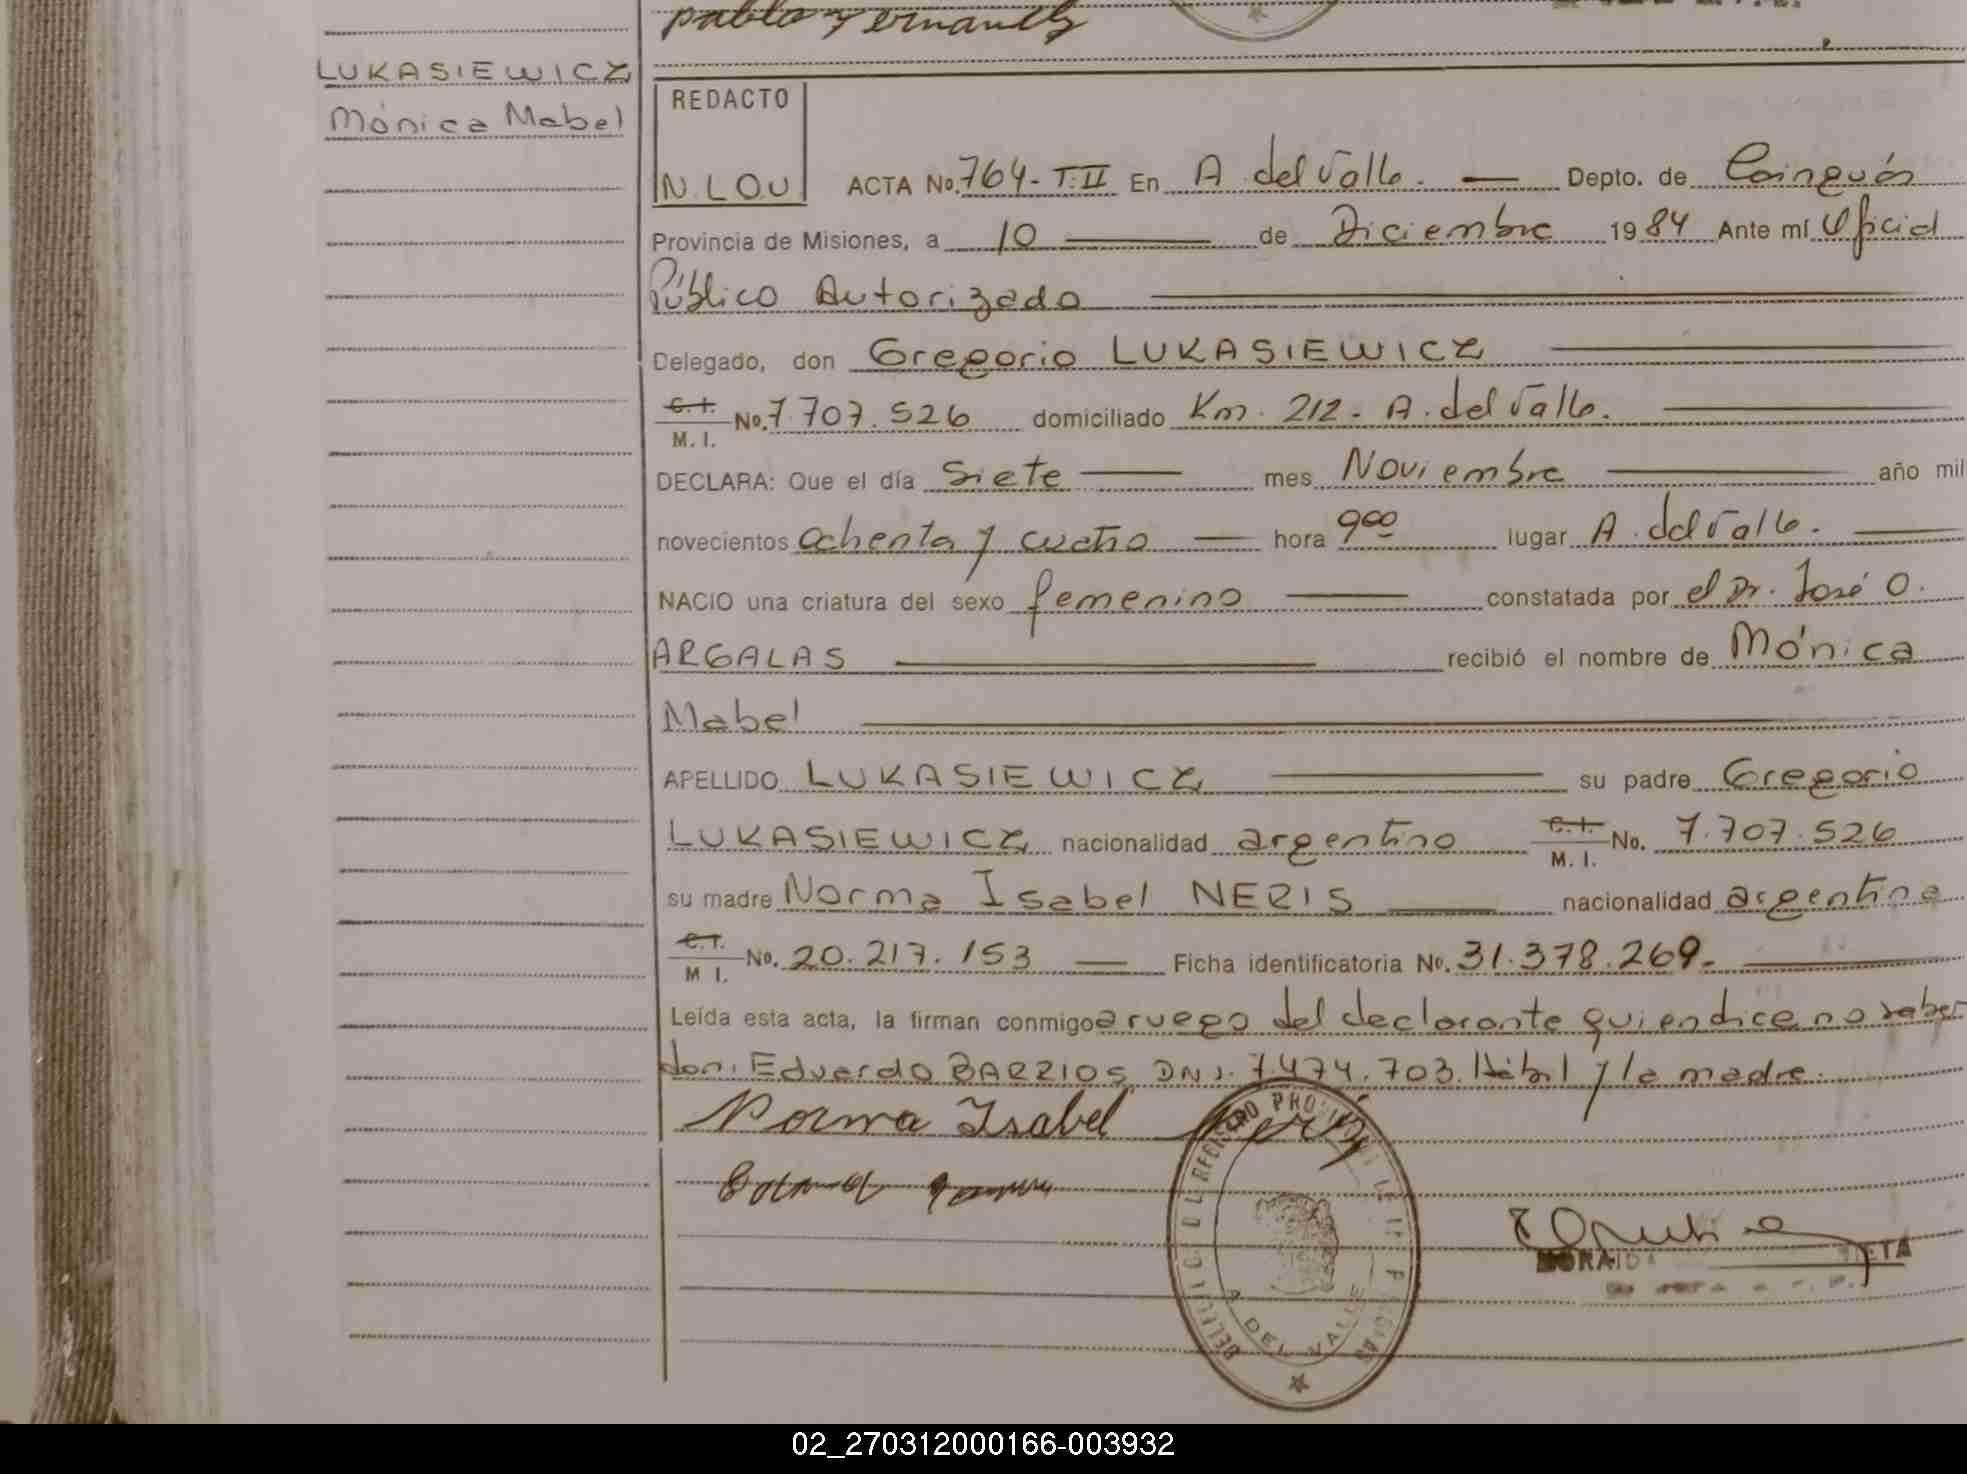 pablo Fernandez
LUKASIEWICZ
Mónica Mabel
REDACTO
N.L.O.U
ACTA No. 764- T.II En A del Valle. Depto. de Cainguás
Provincia de Misiones, a 10 de Diciembre 1984 Ante mí Oficial
Público Autorizado
Delegado, don Gregorio LUKASIEWICZ
C.I. M. I. No. 7.707.526 domiciliado Km. 212- A. del Valle.
DECLARA: Que el día Siete mes Noviembre año mil
novecientos ochenta y cuatro hora 9 00 lugar A. del Valle.
NACIO una criatura del sexo femenino constatada por el Dr. José O.
ARGALAS recibió el nombre de Mónica
Mabel
APELLIDO LUKASIEWICZ su padre Gregorio
LUKASIEWICZ nacionalidad argentino C.I. M. I. No. 7.707.526
su madre Norma Isabel NERIS nacionalidad argentina
C.I. M I. No. 20.217.153 Ficha identificatoria No. 31.378.269.
Leída esta acta, la firman conmigo a ruego del declarante quien dice no saber
don. Eduardo BARRIOS DNI. 7474.703. Hábil y la madre.
Norma Isabel Neris
REGISTRO PROVINCIAL DE LAS PERSONAS
A. DEL VALLE
02_270312000166-003932